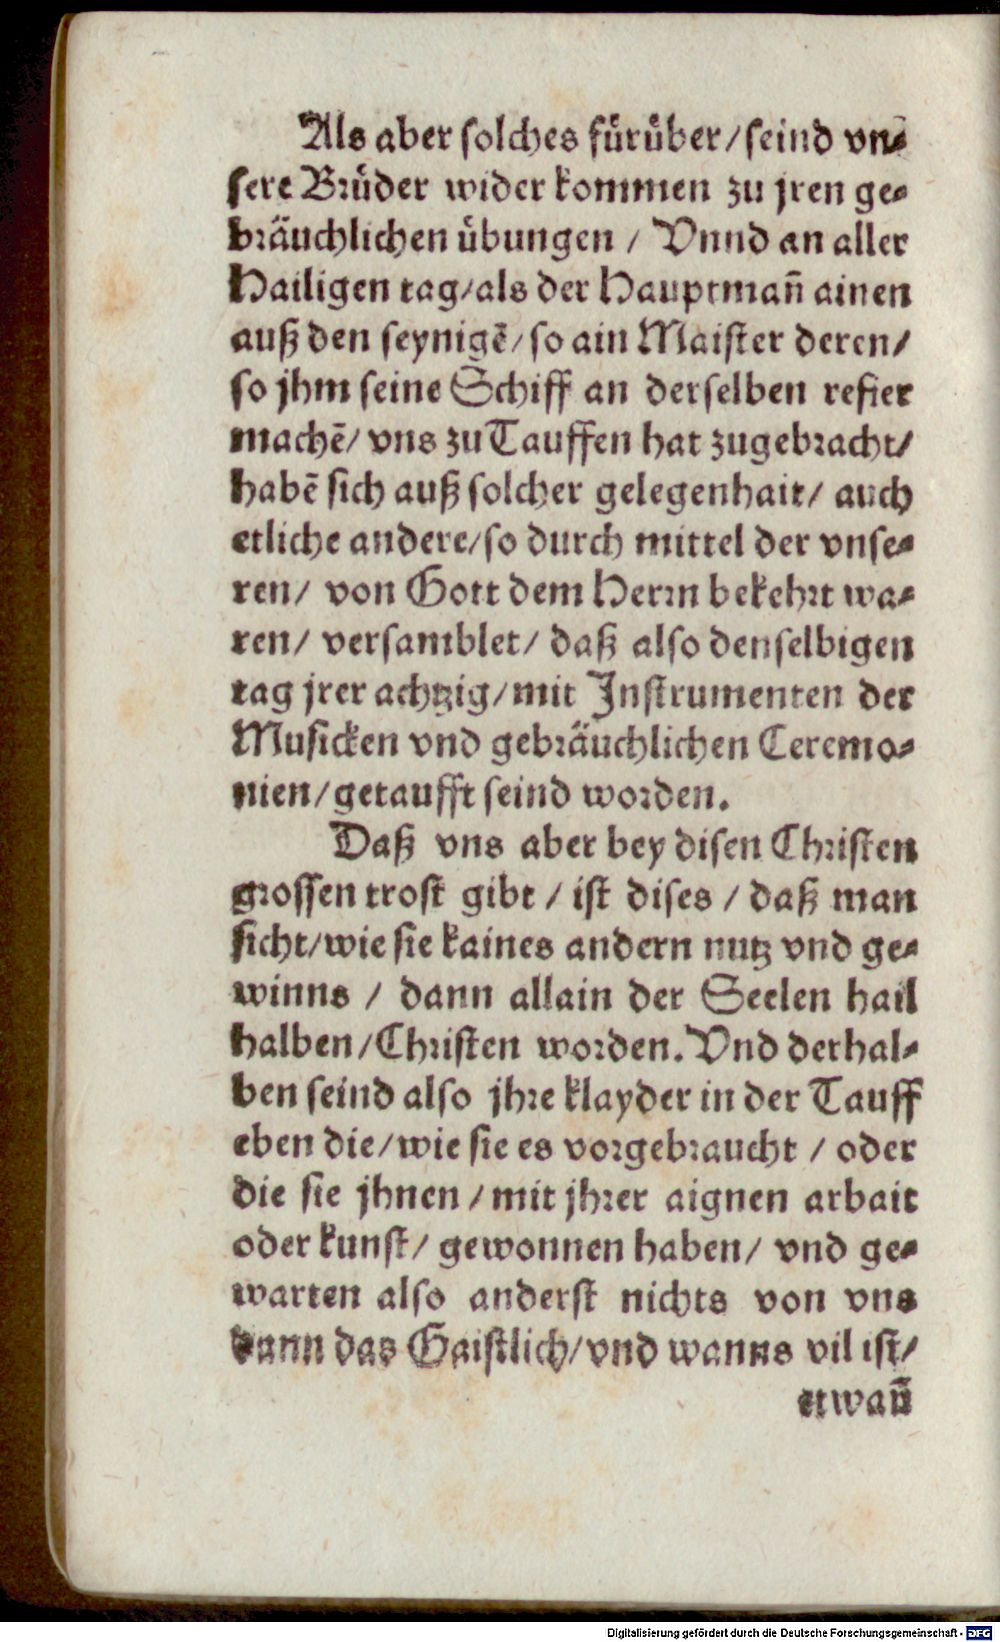 Als aber solches fürüber/seind vn⸗
sere Brüder wider kommen zu jren ge⸗
bräuchlichen übungen / Vnnd an aller
Hailigen tag/als der Hauptman̄ ainen
auß den seynigē/so ain Maister deren/
so jhm seine Schiff an derselben refier
machē/ vns zu Tauffen hat zugebracht/
habē sich auß solcher gelegenhait/ auch
etliche andere/so durch mittel der vnse⸗
ren/ von Gott dem Herrn bekehrt wa⸗
ren/ versamblet/ daß also denselbigen
tag jrer achtzig/mit Instrumenten der
Musicken vnd gebräuchlichen Ceremo⸗
nien/getaufft seind worden.
Daß vns aber bey disen Christen
grossen trost gibt / ist dises / daß man
sicht/wie sie kaines andern nutz vnd ge⸗
winns / dann allain der Seelen hail
halben/Christen worden. Vnd derhal⸗
ben seind also jhre klayder in der Tauff
eben die/wie sie es vorgebraucht / oder
die sie jhnen / mit jhrer aignen arbait
oder kunst/ gewonnen haben/ vnd ge⸗
warten also anderst nichts von vns
dann das Gaistlich/vnd wanns vil ist/
etwan̄
Digitalisierung gefördert durch die Deutsche Forschungsgemeinschaft - DFG